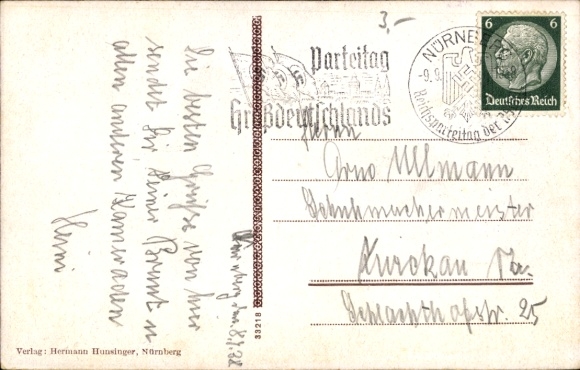 3,-
Parteitag
Großdeutschlands
NÜRNBERG
-9.9.
Reichsparteitag der
6 6
Deutsches Reich
Die besten Grüße von hier
sendet Dir Deiner Braut u
allen anderen Kameraden
Heini
Nürnberg, d. 8.9.38
Herrn
Arno Ullmann
Schuhmachermeister
Zwickau Sa.
Schlachthofstr. 25
33218
Verlag: Hermann Hunsinger, Nürnberg